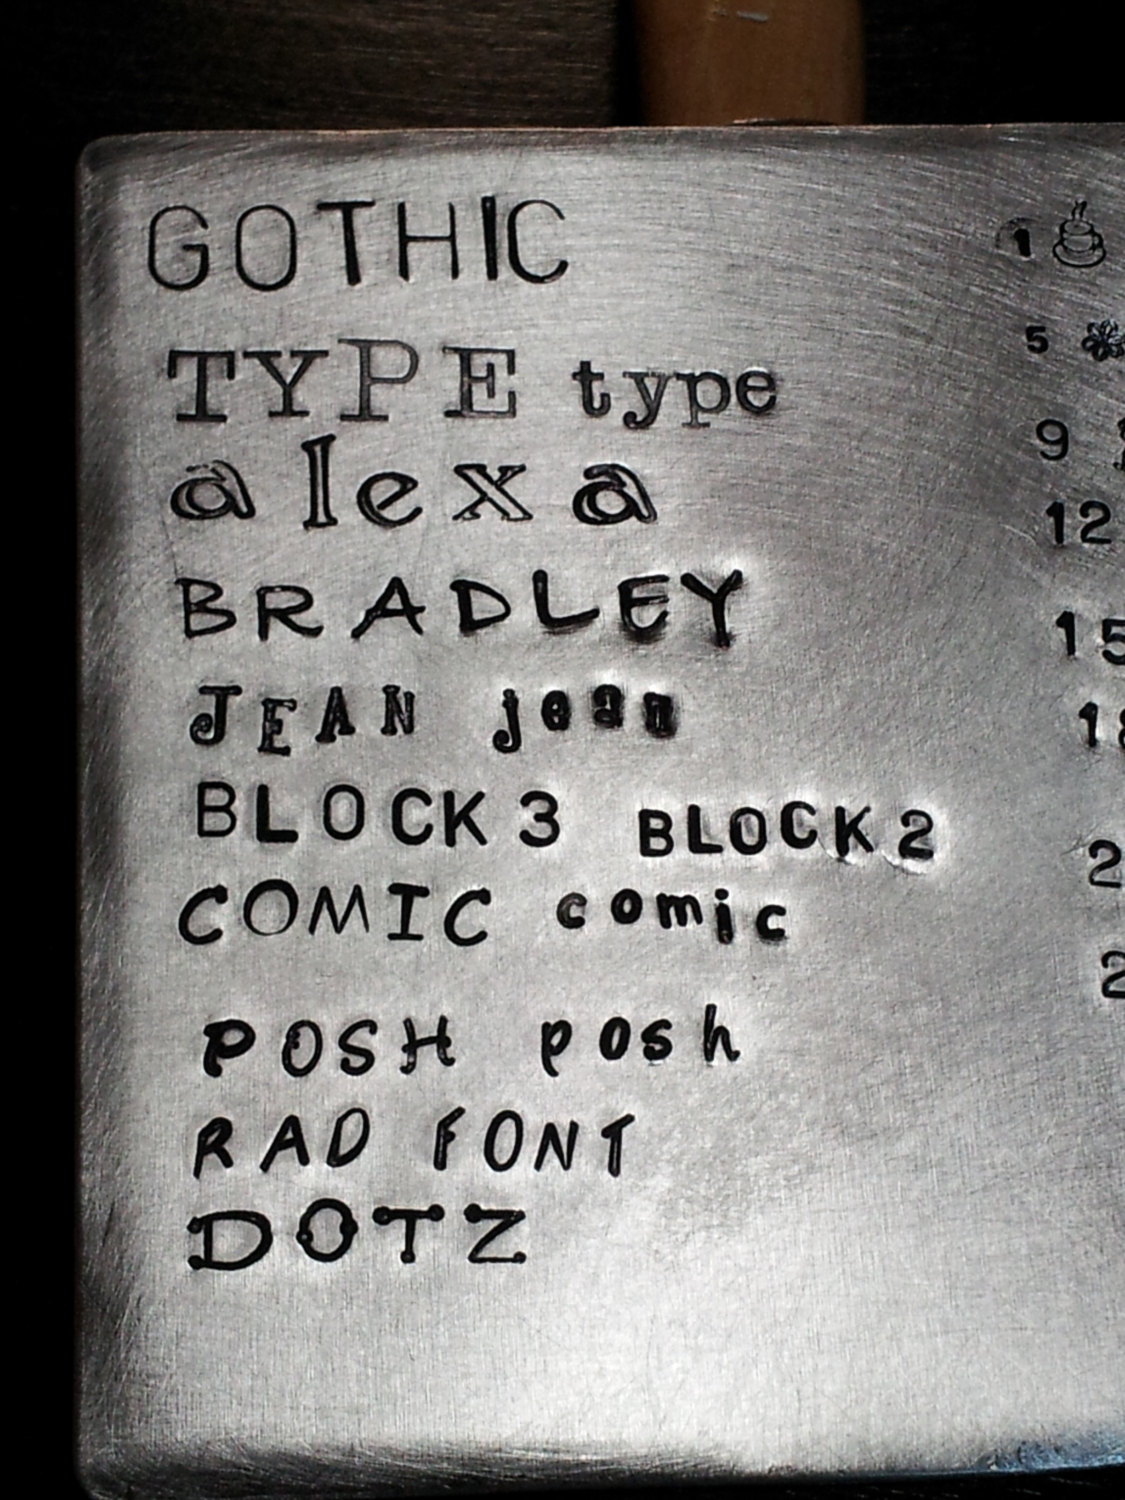 GOTHIC 1
TYPE type 5
alexa 9
BRADLEY 12
JEAN jean 15
BLOCK 3 BLOCK 2
COMIC comic
POSH posh
RAD FONT
DOTZ